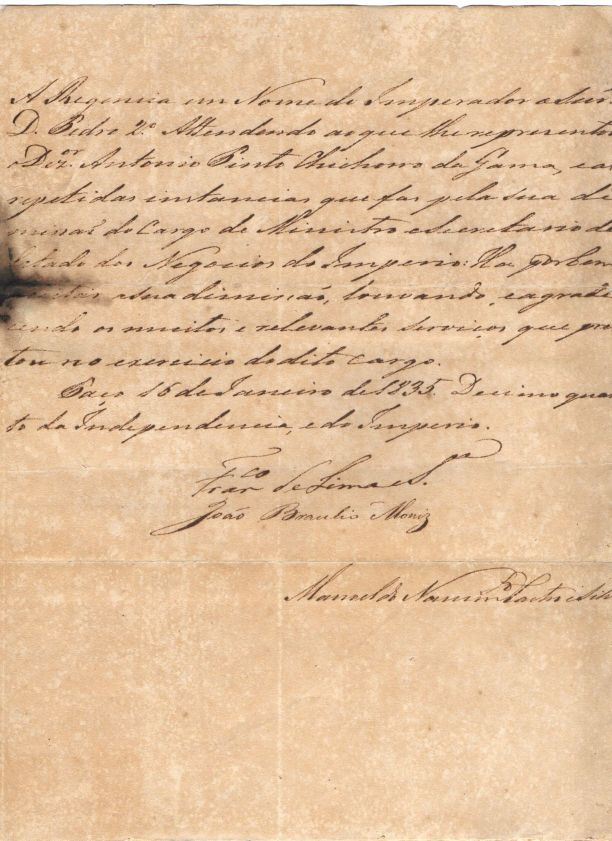 A Regencia em Nome do Imperador o Sen
D. Pedro 2.º Attendendo ao que lhe representou
o Dez.or Antonio Pinto Chichorro da Gama, e as
repetidas instancias que faz pela sua de
missaõ do cargo de Ministro e Secretario de
Estado dos Negocios do Imperio: Ha por bem
a sua dimissaõ, louvando, e agrade
cendo os muitos e relevantes serviços que pres
tou no exercicio do dito cargo.
Paço 16 de Janeiro de 1835. Decimo quar
to da Independencia, e do Imperio.
Fran.co de Lima e S.a
João Braulio Moniz
Manoel do Nascim.to Castro e Silv